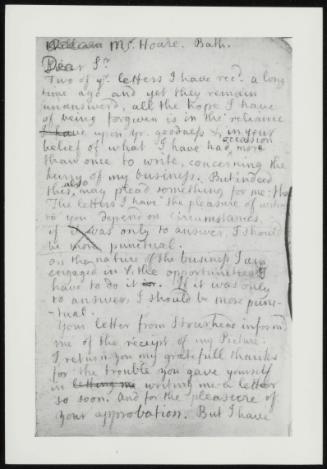 Mr. Hoare, Bath.
Dear Sr.
Two of yr. letters I have recd. a long
time ago and yet they remain
unanswerd, all the hope I have
of being forgiven is in the reliance
I have upon yr. goodness & in your
occasion
belief of what I have had more
than once to write, concerning the
hurry of my business. But indeed
also
this may plead something for me: tho
The letters I have the pleasure of
to you depend on Circumstances.
if I was only to answer, I should
be more punctual.
on the nature of the business I am
engaged in & the opportunities I
have to do it in. If it was only
to answer, I should be more punc-
-tual.
Your letter from Stourhead inform'd
me of the receipt of my Picture.
I return you my gratefull thanks
for the trouble you gave yourself
in letting me writing me a letter
so soon. And for the pleasure of
your approbation. But I have